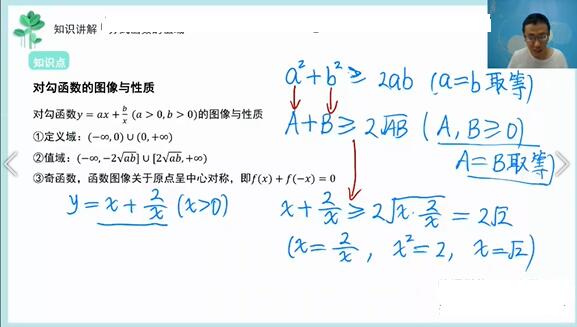 知识讲解
知识点
对勾函数的图像与性质
对勾函数y = ax + b/x (a > 0, b > 0)的图像与性质
①定义域：(−∞, 0) ∪ (0, +∞)
②值域：(−∞, −2√ab] ∪ [2√ab, +∞)
③奇函数，函数图像关于原点呈中心对称，即f(x) + f(−x) = 0
y = x + 2/x (x>0)
a² + b² ≥ 2ab (a=b 取等)
A + B ≥ 2√AB (A, B ≥ 0)
A = B 取等)
x + 2/x ≥ 2√x·2/x = 2√2
(x = 2/x, x² = 2, x = √2)